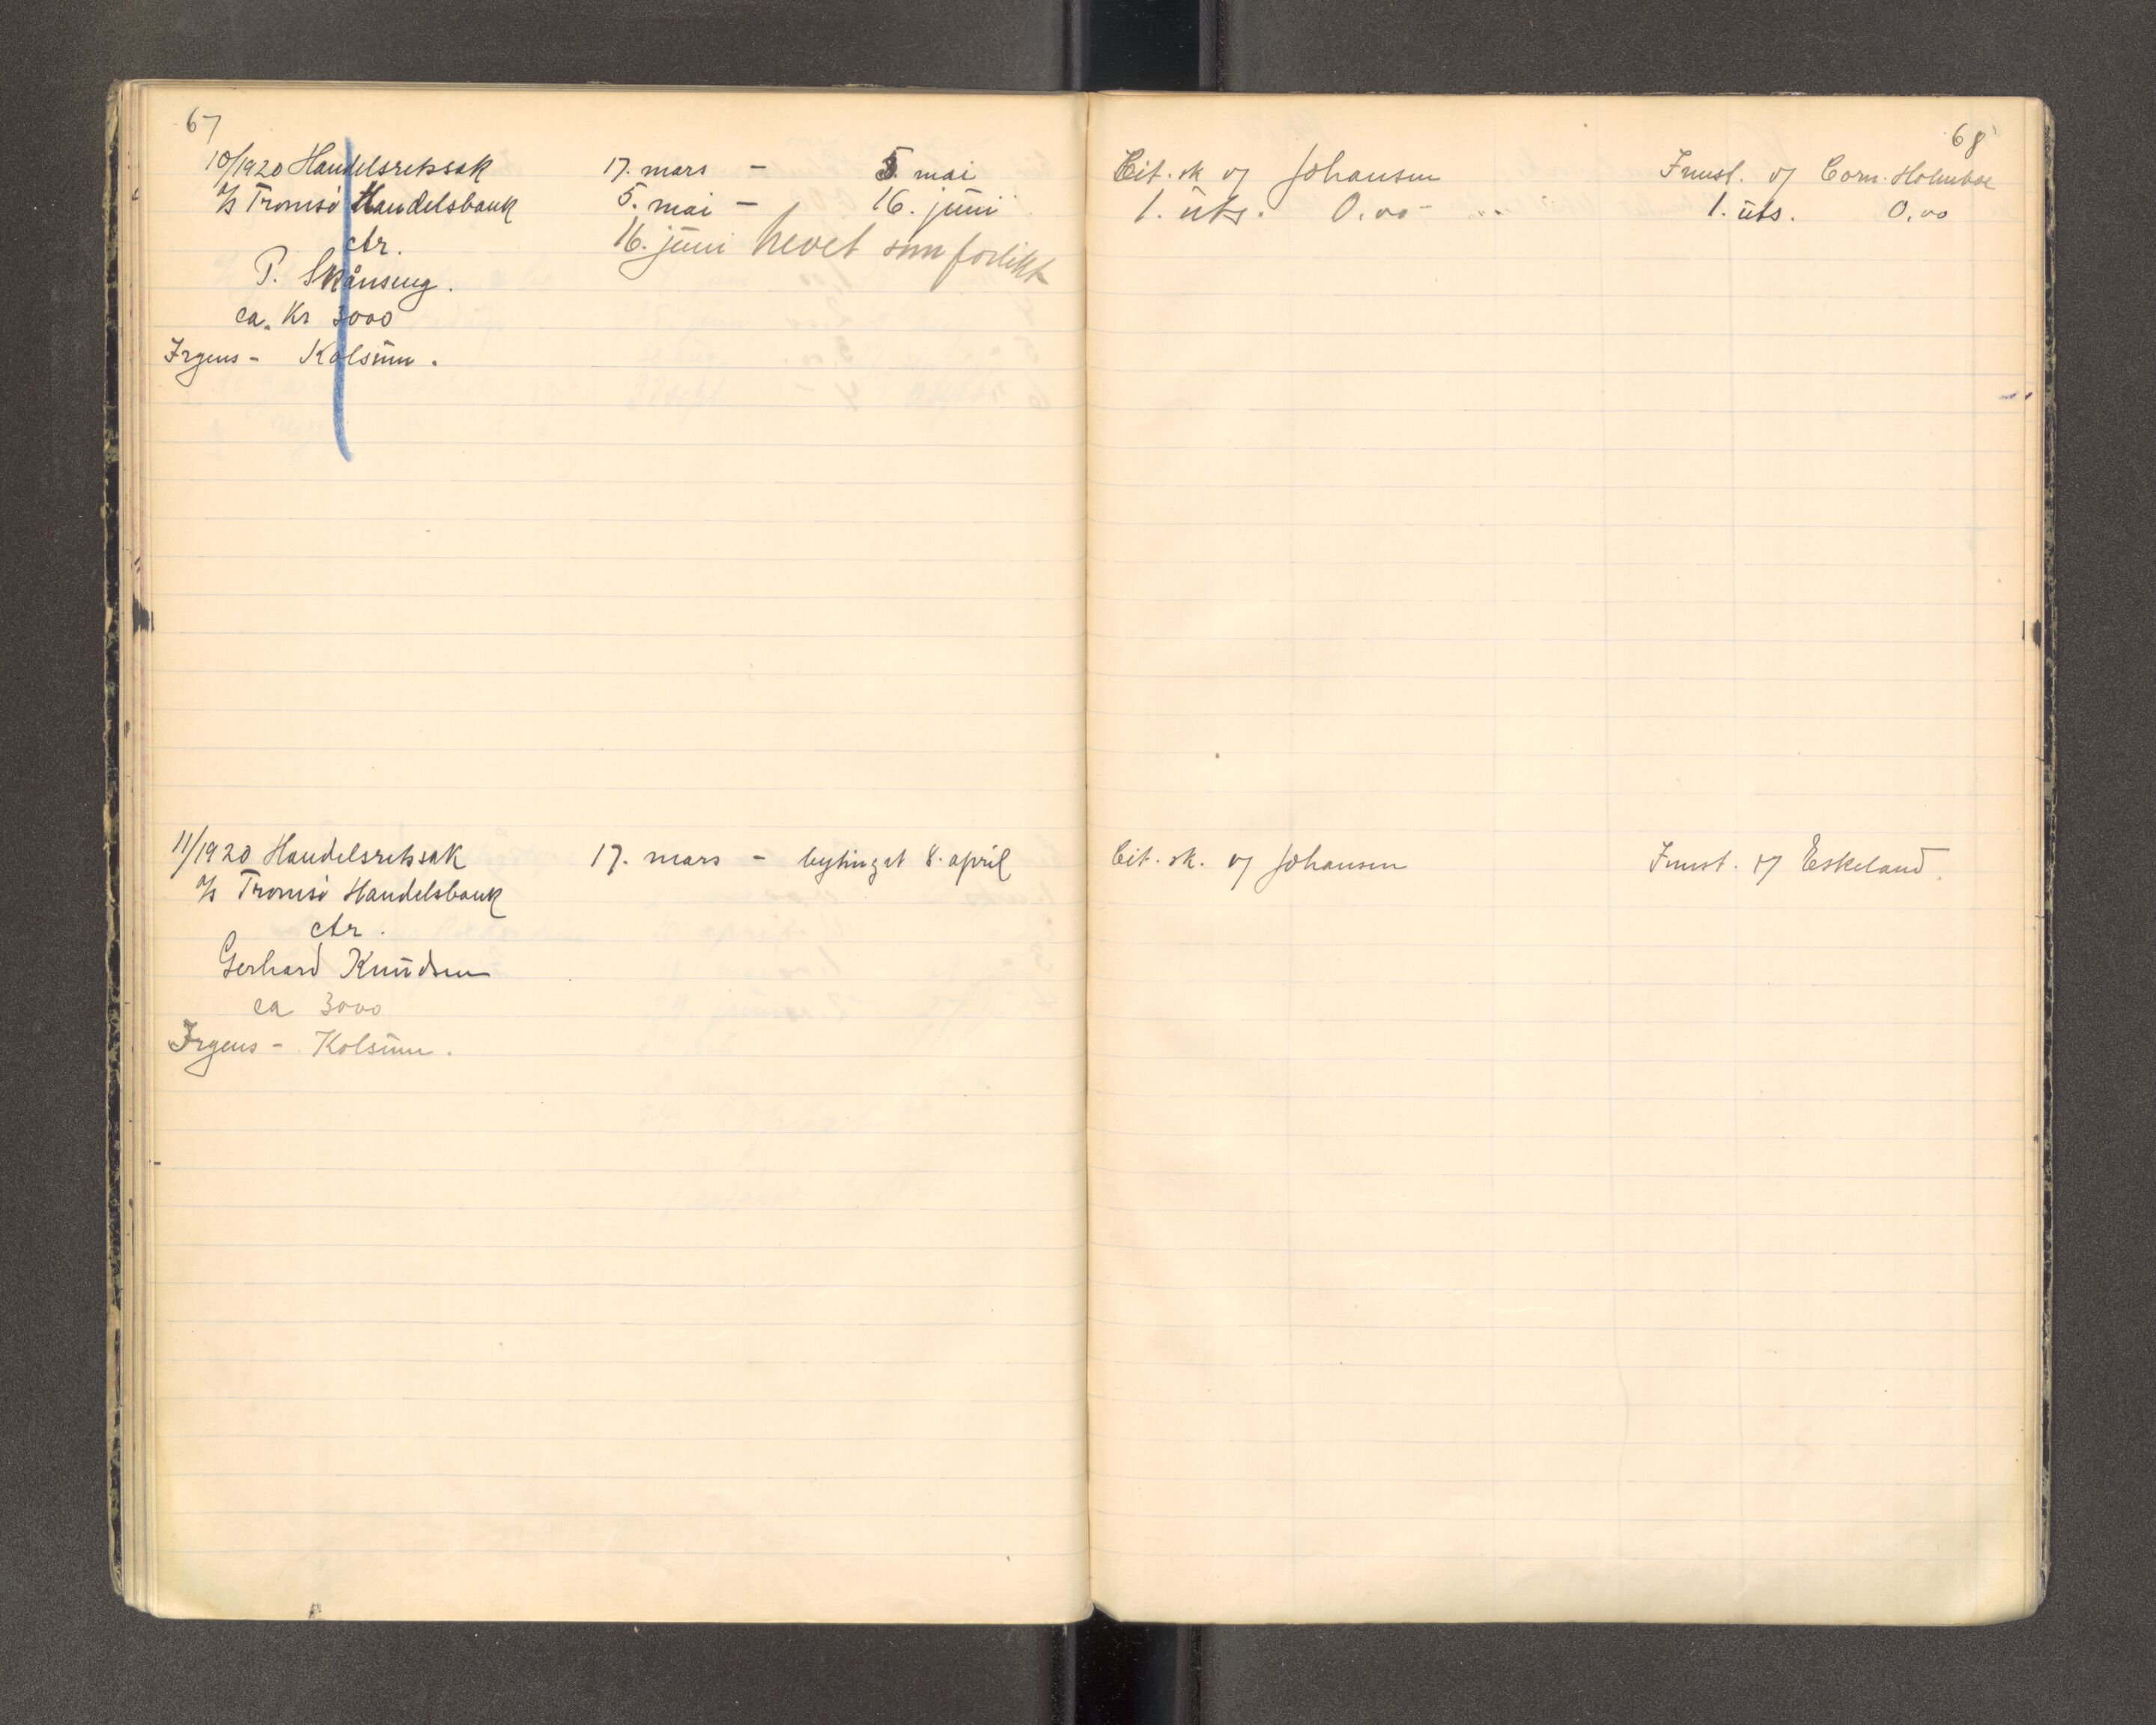 67
10/1920 Handelsretssak 17. mars - 5. mai
A/S Tromsö Handelsbank 5. mai - 16. juni
ctr. 16. juni hevet som forlikt
P. Skånseng.
ca. Kr 3000
Irgens - Kolsum.
11/1920 Handelsretssak 17. mars - bytinget 8. april
A/S Tromsö Handelsbank
ctr.
Gerhard Knudsen
ca 3000
Irgens - Kolsum.
68
Cit. sk og Johansen Innst. og Corn. Holmboe
1. uts. 0.00 1. uts. 0.00
Cit. sk. og Johansen Innst. og Eskeland.